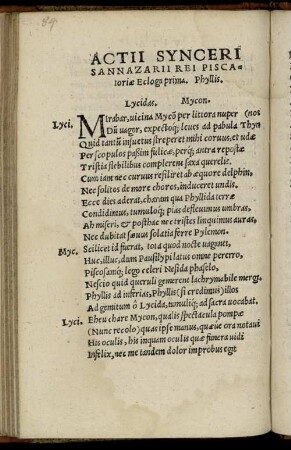 ACTII SYNCERI
SANNAZARII REI PISCA-
toriæ Ecloga prima. Phyllis.
Lycidas. Mycon.
Lyci. Mirabar, uicina Mycō per littora nuper (nos
Dū uagor, expectoq; leues ad pabula Thyn
Quid tantū insuetus streperet mihi coruus, et udæ
Per scopulos passim fulicæ, perq; antra repostæ
Tristia flebilibus complerent saxa querelis.
Cum iam nec curuus resiliret ab æquore delphin,
Nec solitos de more choros, induceret undis.
Ecce dies aderat, charam qua Phyllida terræ
Condidimus, tumuloq; pias defleuimus umbras,
Ah miseri, & posthac nec tristes linquimus auras,
Nec dubitat sæuus solatia ferre Pylemon.
Myc. Scilicet id fuerat, tota quod nocte uaganti,
Huc, illuc, dum Pausilypi latus omne pererro,
Piscosamq; lego celeri Nesida phaselo,
Nescio quid queruli gemerent lachrymabile mergi.
Phyllis ad inferias, Phyllis (si credimus) illos
Ad gemitum ô Lycida, tumuliq; ad sacra uocabat.
Lyci. Eheu chare Mycon, qualis spectacula pompæ
(Nunc recolo) quas ipse manus, quæue ora notaui
His oculis, his inquam oculis quæ funera uidi
Infelix, nec me tandem dolor improbus egit